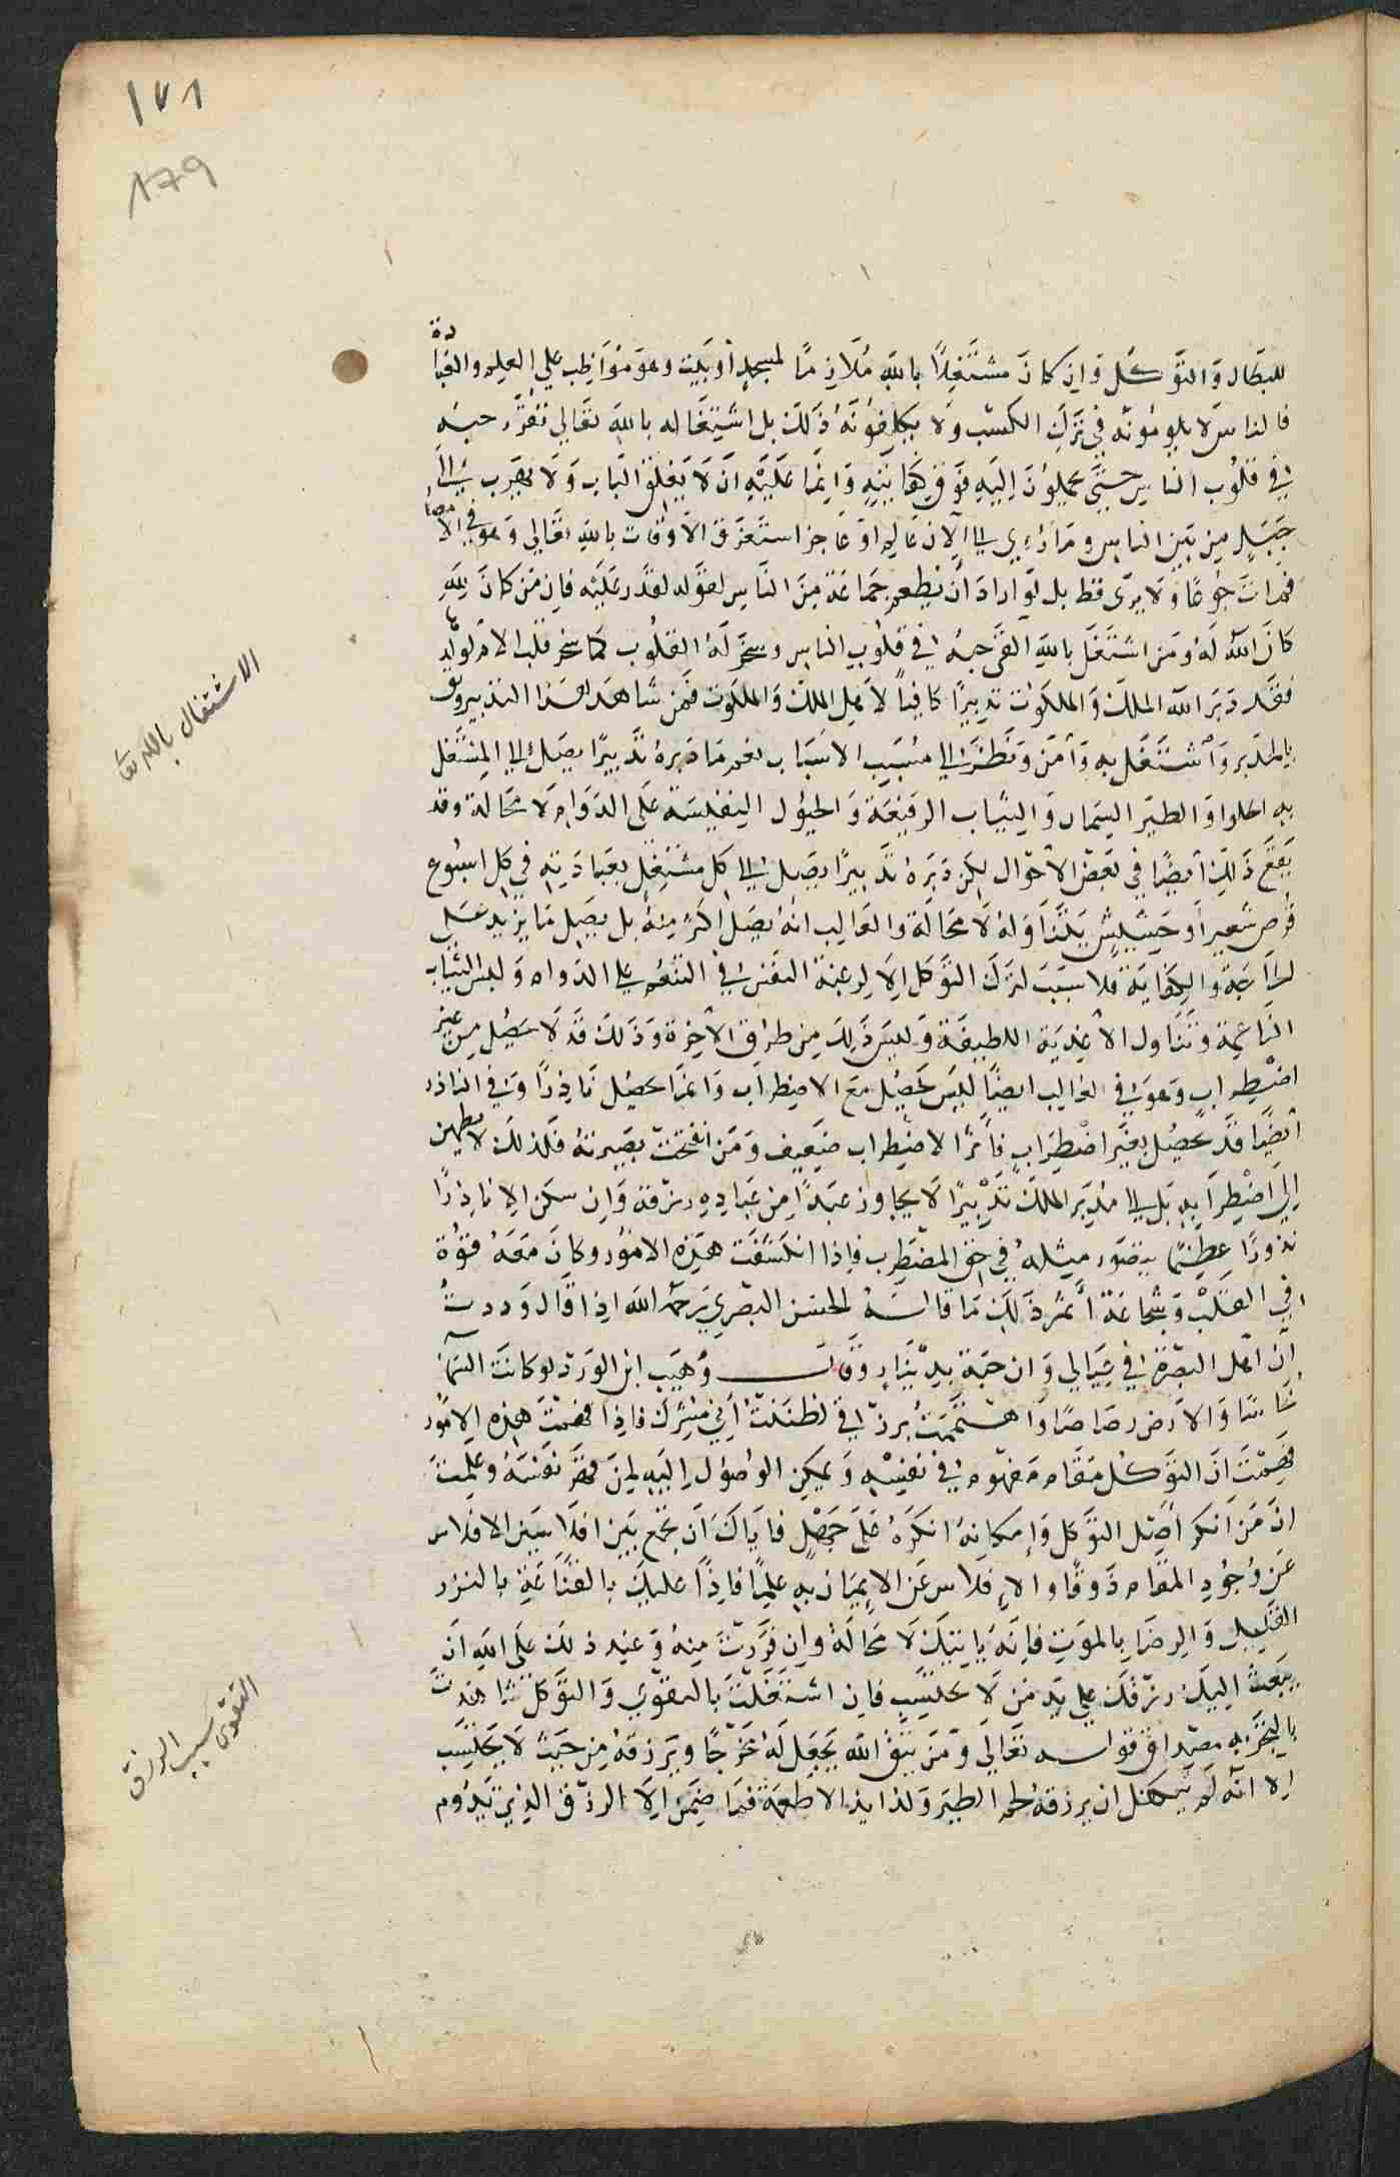 ١٧٩
179
للبطال والتوكل وان كان مشتغلا بالله ملازما لمسجد أو بيت وهو مواظب علي العلم والعبادة
فالناس لا يلومونه في ترك الكسب ولا يكلفونه ذلك بل اشتغاله بالله تعالي تقرر حبه
في قلوب الناس حتي يحملون اليه فوق كفايته وانما عليه ان لا يغلق الباب ولا يهرب الي
جبل من بين الناس وما رءي الي الان عالم او عابد استغرق الاوقات بالله تعالي وهو في الامصار
فمات جوعا ولا يري قط بل لو اراد ان يطعم جماعة من الناس بقوله لقدر عليه فان من كان لله
كان الله له ومن اشتغل بالله القي حبه في قلوب الناس وسخر له القلوب كما سخر قلب الام لولدها
فقد دبر الله الملك والملكوت تدبيرا كافيا لاهل الملك والملكوت فمن شاهد هذا التدبير وثق
بالمدبر واشتغل به وآمن ونظر الي مسبب الاسباب نعم ما دبره تدبيرا يصل الي المشتغل
به الحلوا والطير السمان والثياب الرفيعة والخيول النفيسة على الدوام لا محالة وقد
يقع ذلك أيضا في بعض الأحوال لكن دبره تدبيرا يصل الي كل مشتغل بعبادته في كل اسبوع
قرص شعير أو حشيش يتناوله لا محالة والغالب انه يصل أكثر منه بل يصل ما يزيد على
الحاجة والكفاية فلا سبب لترك التوكل الا لرغبة النفس في التنعم علي الدوام ولبس الثياب
الناعمة وتناول الأغذية اللطيفة وليس ذلك من طريق الآخرة وذلك قد لا يحصل من غير
اضطراب وهو في الغالب ايضا ليس يحصل مع الاضطراب وانما يحصل نادرا وفي النادر
أيضا قد يحصل بغير اضطراب فأثر الاضطراب ضعيف ومن انفتحت بصيرته فلذلك لا يطمئن
إلي اضطرابه بل الي مدبر الملك تدبيرا لا يجاوز عبدا من عباده رزقه وان سكن الا نادرا
ندورا عظيما يتصور مثله في حق المضطرب فاذا انكشفت هذه الامور وكان معه قوة
في القلب وشجاعة أثمر ذلك ما قاله الحسن البصري رحمه الله اذا قال وددت
ان اهل البصرة في عيالي وان حبة بدينار وقال وهيب ابن الورد لو كانت السماء
نحاسا والارض رصاصا واهتممت برزقي لظننت أني مشرك فاذا فهمت هذه الامور
فهمت ان التوكل مقام مفهوم في نفسه ويمكن الوصول اليه لمن قهر نفسه وعلمت
ان من انكر اصل التوكل وإمكانه انكره على جهل فاياك ان تجمع بين افلاسين الافلاس
عن وجود المقام ذوقا والإفلاس عن الايمان به علما فاذا عليك بالقناعة بالنزر
القليل والرضا بالموت فانه ياتيك لا محالة وان فررت منه وعند ذلك على الله ان
يبعث اليك رزقك علي يد من لا تحتسب فان اشتغلت بالتقوي والتوكل شاهدت
بالتجربة مصداق قوله تعالي ومن يتق الله يجعل له مخرجا ويرزقه من حيث لا يحتسب
الا انه لم يتكفل ان يرزقه لحم الطير ولذايذ الاطعمة فما ضمن الا الرزق الذي تدوم
الاشتغال بالله تعا
التقوى سبب الرزق